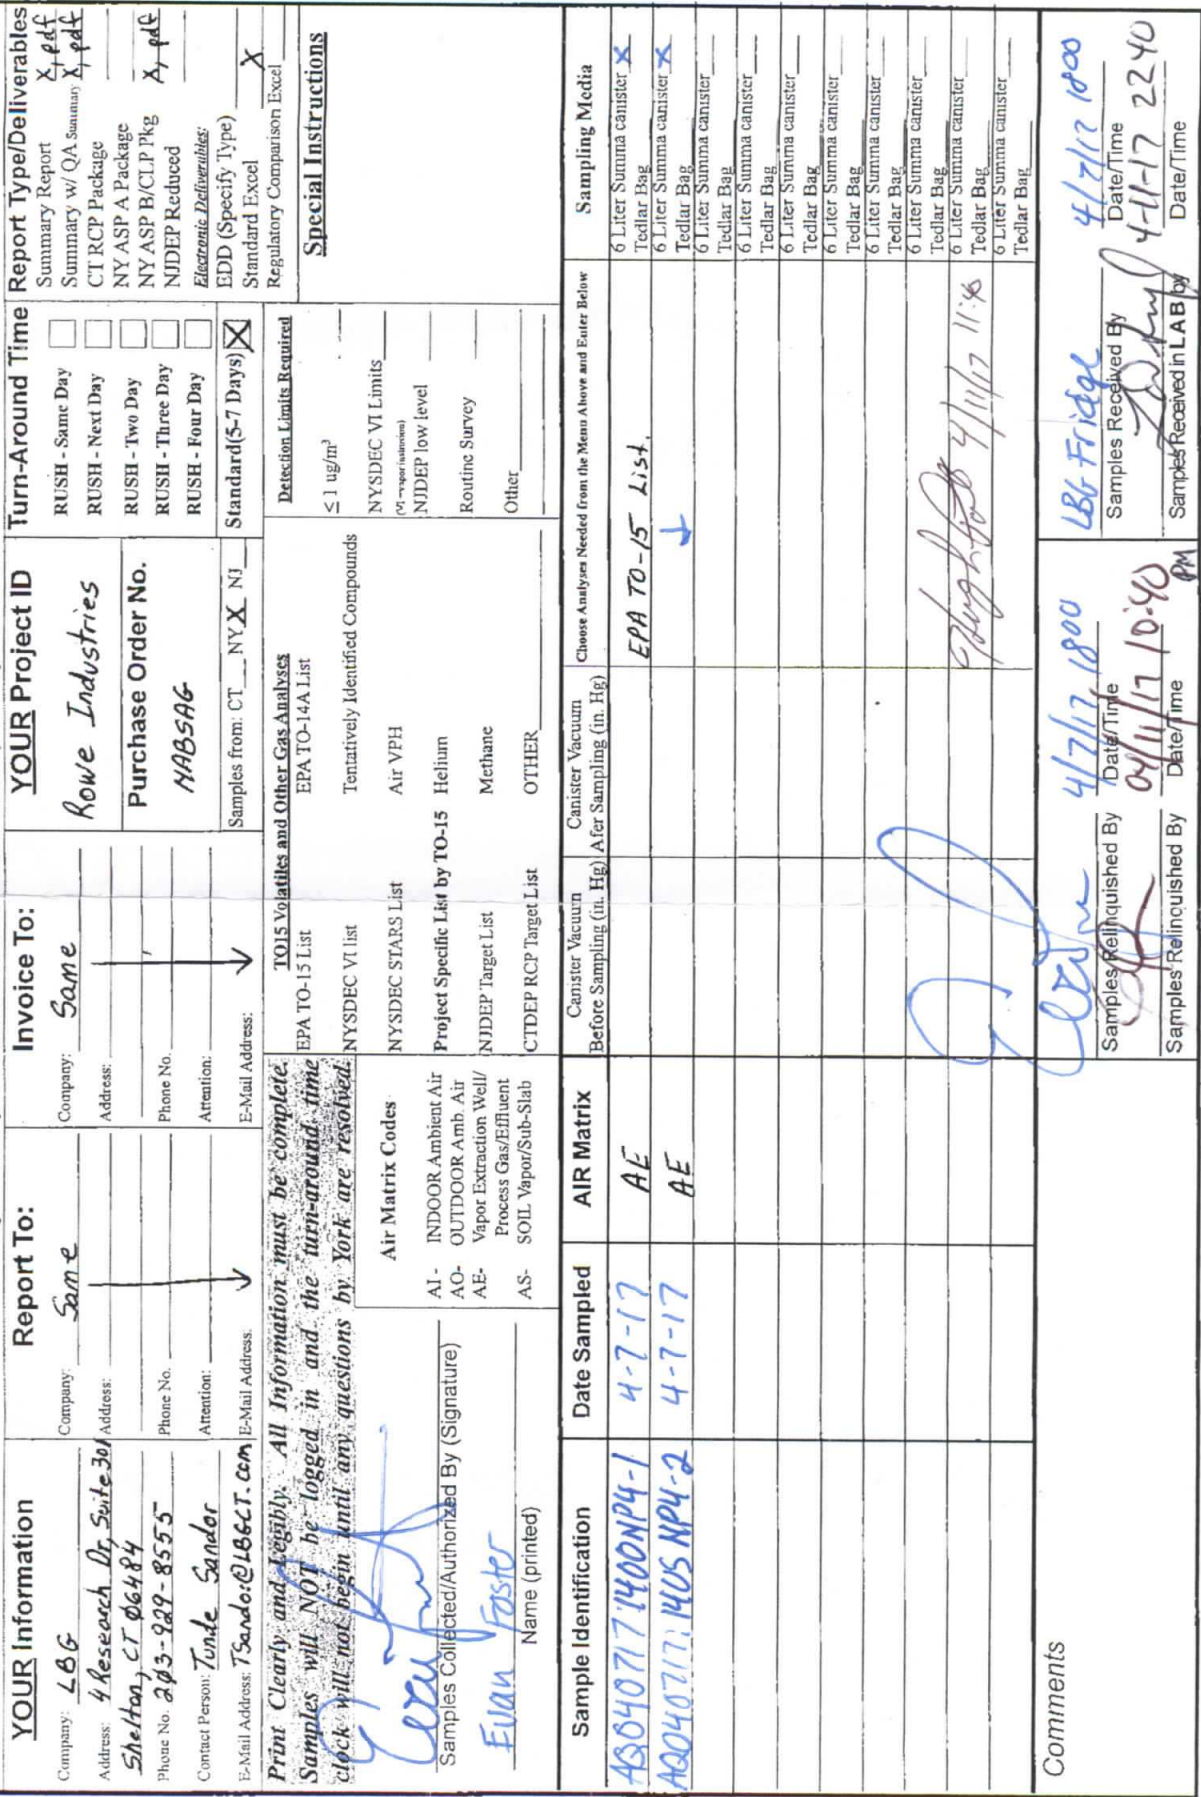 YOUR Information
Company: LBG
Address: 4 Research Dr, Suite 301
Shelton, CT 06484
Phone No. 203-929-8555
Contact Person: Tunde Sandor
E-Mail Address: TSandor@LBGCT.com
Report To:
Company: Same
Address:
Phone No.
Attention:
E-Mail Address:
Invoice To:
Company: Same
Address:
Phone No.
Attention:
E-Mail Address:
YOUR Project ID
Rowe Industries
Purchase Order No.
Samples from: CT NY X NJ
Turn-Around Time
RUSH - Same Day
RUSH - Next Day
RUSH - Two Day
RUSH - Three Day
RUSH - Four Day
Standard(5-7 Days) X
Report Type/Deliverables
Summary Report X, pdf
Summary w/ QA Summary X, pdf
CT RCP Package
NY ASP A Package
NY ASP B/CLP Pkg X, pdf
NJDEP Reduced
Electronic Deliverables:
EDD (Specify Type)
Standard Excel X
Regulatory Comparison Excel
Print Clearly and Legibly. All Information must be complete.
Samples will NOT be logged in and the turn-around time
clock will not begin until any questions by York are resolved.
Samples Collected/Authorized By (Signature)
Evan Foster
Name (printed)
Air Matrix Codes
AI - INDOOR Ambient Air
AO- OUTDOOR Amb Air
AE- Vapor Extraction Well/
Process Gas/Effluent
AS- SOIL Vapor/Sub-Slab
TO15 Volatiles and Other Gas Analyses
EPA TO-15 List EPA TO-14A List
NYSDEC VI list Tentatively Identified Compounds
NYSDEC STARS List Air VPH
Project Specific List by TO-15 Helium
NJDEP Target List Methane
CTDEP RCP Target List OTHER
Detection Limits Required
≤ 1 ug/m³
NYSDEC VI Limits
NJDEP low level
Routine Survey
Other
Special Instructions
Sample Identification Date Sampled AIR Matrix Canister Vacuum Before Sampling (in. Hg) Canister Vacuum Afer Sampling (in. Hg) Choose Analyses Needed from the Menu Above and Enter Below Sampling Media
AQ040717:1400NP4-1 4-7-17 AE EPA TO-15 List. 6 Liter Summa canister X
Tedlar Bag
AQ040717:1405 NP4-2 4-7-17 AE ↓ 6 Liter Summa canister X
Tedlar Bag
6 Liter Summa canister
Tedlar Bag
6 Liter Summa canister
Tedlar Bag
6 Liter Summa canister
Tedlar Bag
6 Liter Summa canister
Tedlar Bag
6 Liter Summa canister
Tedlar Bag
6 Liter Summa canister
Tedlar Bag
4/11/17 11:40
6 Liter Summa canister
Tedlar Bag
6 Liter Summa canister
Tedlar Bag
Comments
4/7/17 1800
Samples Relinquished By Date/Time
04/11/17 10:40 PM
Samples Relinquished By Date/Time
LBG Fridge 4/7/17 1800
Samples Received By Date/Time
4-11-17 2240
Samples Received in LAB by Date/Time